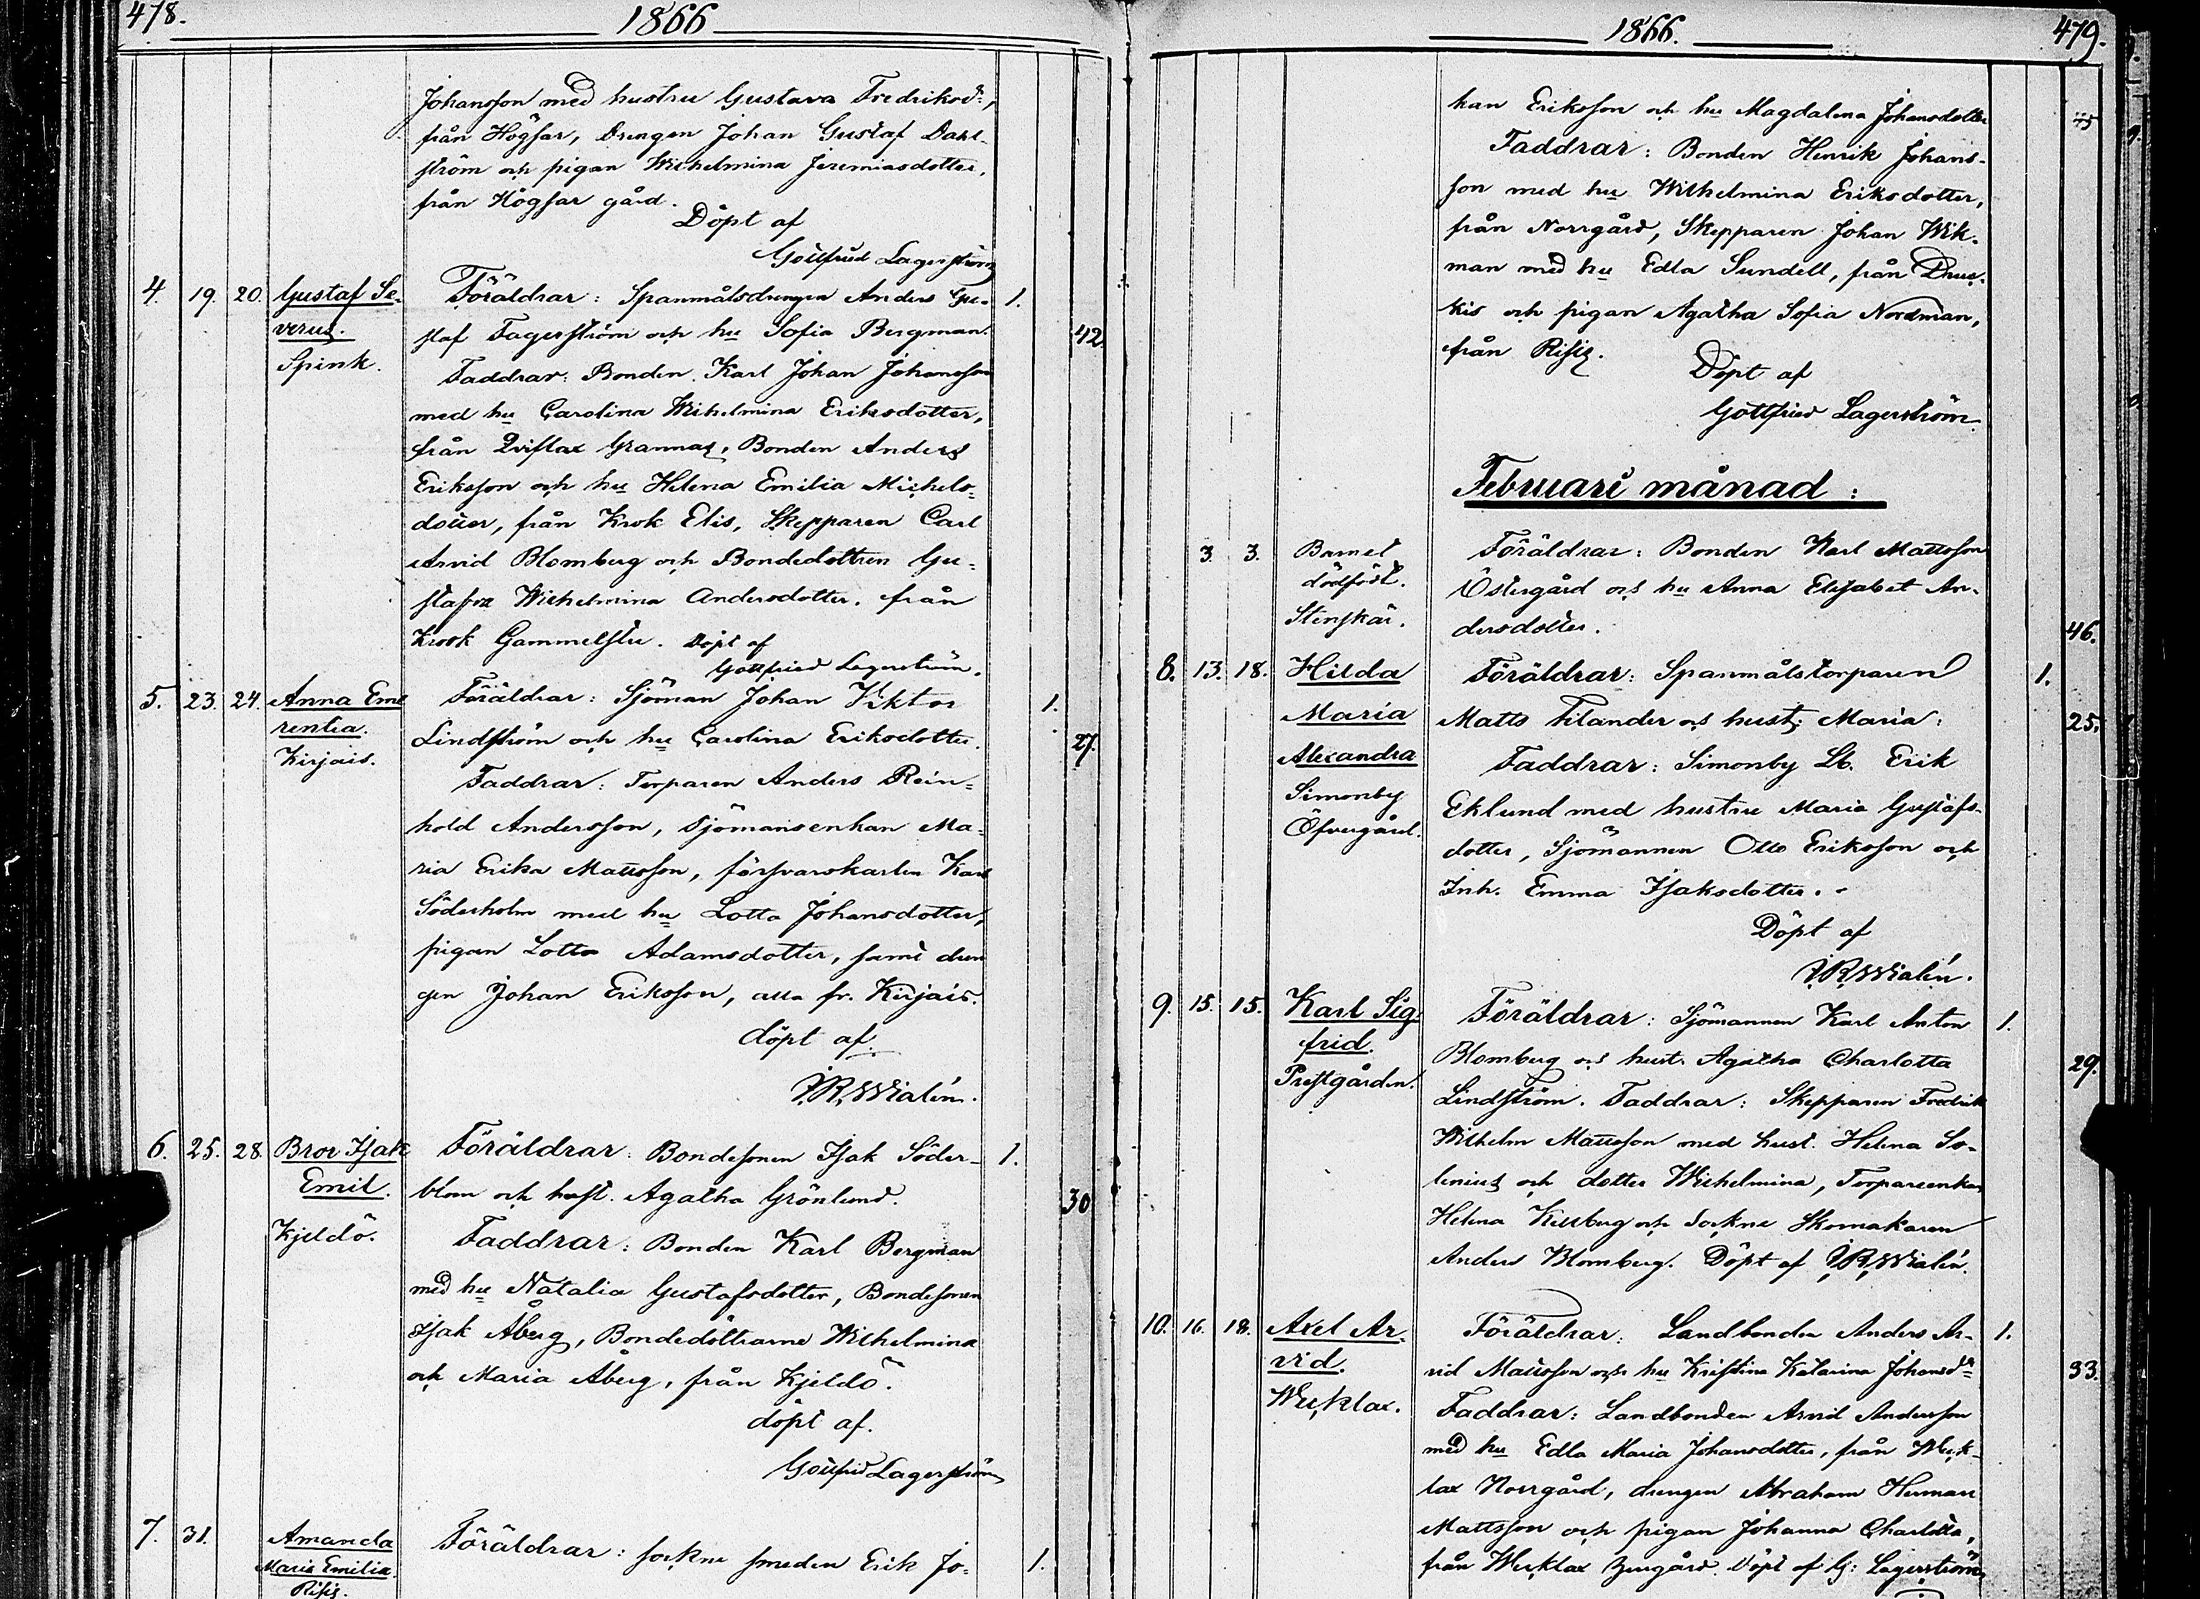 478.
1866
Johansson med hustru Gustava Fredriksd:,
från Högsar, Drengen Johan Gustaf Dahl-
ström och pigan Wilhelmina Jeremiasdotter,
från Högsar gård.
Döpt af
Gottfried Lagerström
4. 19. 20. Gustaf Se- Föräldrar: Spanmålsdrengen Anders Gu- 1.
verus. staf Fagerström och hu Sofia Bergman. 42.
Spink. Faddrar: Bonden Karl Johan Johansson
med hu Carolina Wilhelmina Eriksdotter,
från Qviflax Grannas, Bonden Anders
Eriksson och hu Helena Emilia Michels-
dotter, från Krok Elis, Skepparen Carl
Arvid Blomberg och Bondedottren Gu-
stafva Wilhelmina Andersdotter, från
Krook Gammelstu. Döpt af
Gottfried Lagerström.
5. 23. 24. Anna Eme Föräldrar: Sjöman Johan Viktor 1.
rentia. Lindström och hu Carolina Eriksdotter. 27.
Kirjais. Faddrar: Torparen Anders Rein-
hold Andersson, Sjömansenkan Ma-
ria Erika Mattsson, försvarskarlen Karl
Söderholm med hu Lotta Johansdotter,
pigan Lotta Adamsdotter, samt dren
gen Johan Eriksson, alla fr. Kirjais.
döpt af
J.R. Wialén.
6. 25. 28. Bror Isak Föräldrar: Bondesonen Isak Söder- 1.
Emil. blom och hust. Agatha Grönlund. 30
Kjeldö. Faddrar: Bonden Karl Bergman
med hu Natalia Gustafsdotter, Bondesonen
Isak Åberg, Bondedöttrarne Wilhelmina
och Maria Åberg, från Kjeldö.
döpt af.
Gottfrid Lagerström
7. 31. Amanda Föräldrar: sockne smeden Erik Jo- 1.
Maria Emilia.
Risis.
1866.
479.
han Eriksson och hu Magdalena Johansdotter 45
Faddrar: Bonden Henrik Johans-
son med hu Wilhelmina Eriksdotter,
från Norrgård, Skepparen Johan Wik-
man med hu Edla Sundell, från
kis och pigan Agatha Sofia Nordman,
från Risis.
Döpt af
Gottfried Lagerström.
Februari månad:
3. 3. Barnet Föräldrar: Bonden Karl Mattsson
dödfödt. Östergård och hu Anna Elisabet An-
Stenskär. dersdotter. 46.
8. 13. 18. Hilda Föräldrar: Spanmålstorparen 1.
Maria Matts Filander och hust: Maria: 25.
Alexandra Faddrar: Simonby Lb. Erik
Simonby Eklund med hustru Maria Gustafs-
Öfvergård. dotter, Sjömannen Otto Eriksson och
Inh. Emma Isaksdotter.
Döpt af
J.R. Wialén.
9. 15. 15. Karl Sig- Föräldrar: Sjömannen Karl Anton 1.
frid. Blomberg och hust. Agatha Charlotta 29.
Prestgården. Lindström. Faddrar: Skepparen Fredrik
Wilhelm Mattsson med hust. Helena So-
lenius och dotter Wilhelmina, Torpareenkan
Helena och Sockne Skomakaren
Anders Blomberg. Döpt af J.R. Wialén.
10. 16. 18. Axel Ar- Föräldrar: Landbonden Anders Ar- 1.
vid. vid Mattsson och hu Kristina Katarina Johansdr 33.
Wecklax. Faddrar: Landbonden Arvid Andersson
med hu Edla Maria Johansdotter, från Weck-
lax Norrgård, drengen Abraham Herman
Mattsson och pigan Johanna Charlotta,
från Wecklax Yrrgård. Döpt af G: Lagerström